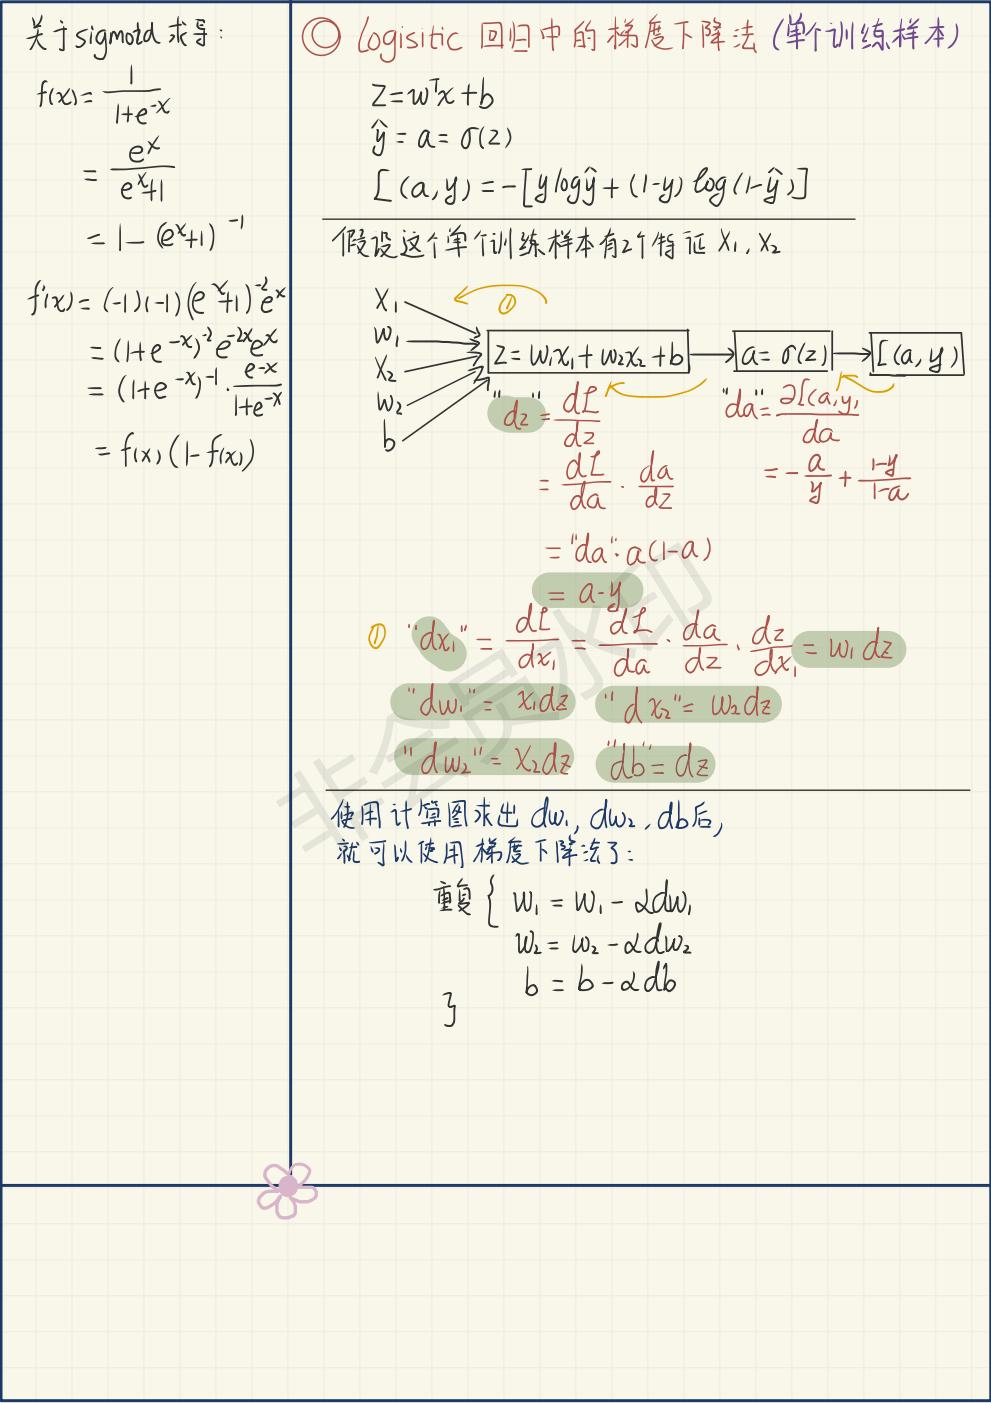 关于sigmotd 求导:
f(x)= 1/(1+e^-x)
= e^x/(e^x+1)
= 1-(e^x+1)^-1
f'(x)=(-1)(-1)(e^x+1)^-2 e^x
=(1+e^-x)^-2 e^-2x e^x
=(1+e^-x)^-1 · e^-x/(1+e^-x)
= f(x)(1-f(x))
◎ Logisitic 回归中的梯度下降法(单个训练样本)
Z=w^T x+b
ŷ = a = σ(z)
L(a,y) = -[y log ŷ + (1-y) log(1-ŷ)]
假设这个单个训练样本有2个特征 X₁, X₂
①
X₁
W₁
X₂
W₂
b
Z=W₁X₁+W₂X₂+b
a=σ(z)
L(a,y)
"dz"=dL/dz
= dL/da · da/dz
= "da"·a(1-a)
= a-y
"da"=∂L(a,y)/da
= -a/y + (1-y)/(1-a)
① "dx₁" = dL/dx₁ = dL/da · da/dz · dz/dx₁ = w₁ dz
"dw₁"= x₁dz "dx₂"= w₂dz
"dw₂"= X₂dz "db"=dz
使用计算图求出 dw₁, dw₂, db后,
就可以使用梯度下降法了:
重复 { w₁ = w₁ - αdw₁
w₂ = w₂ - αdw₂
b = b - αdb
}
非会员水印